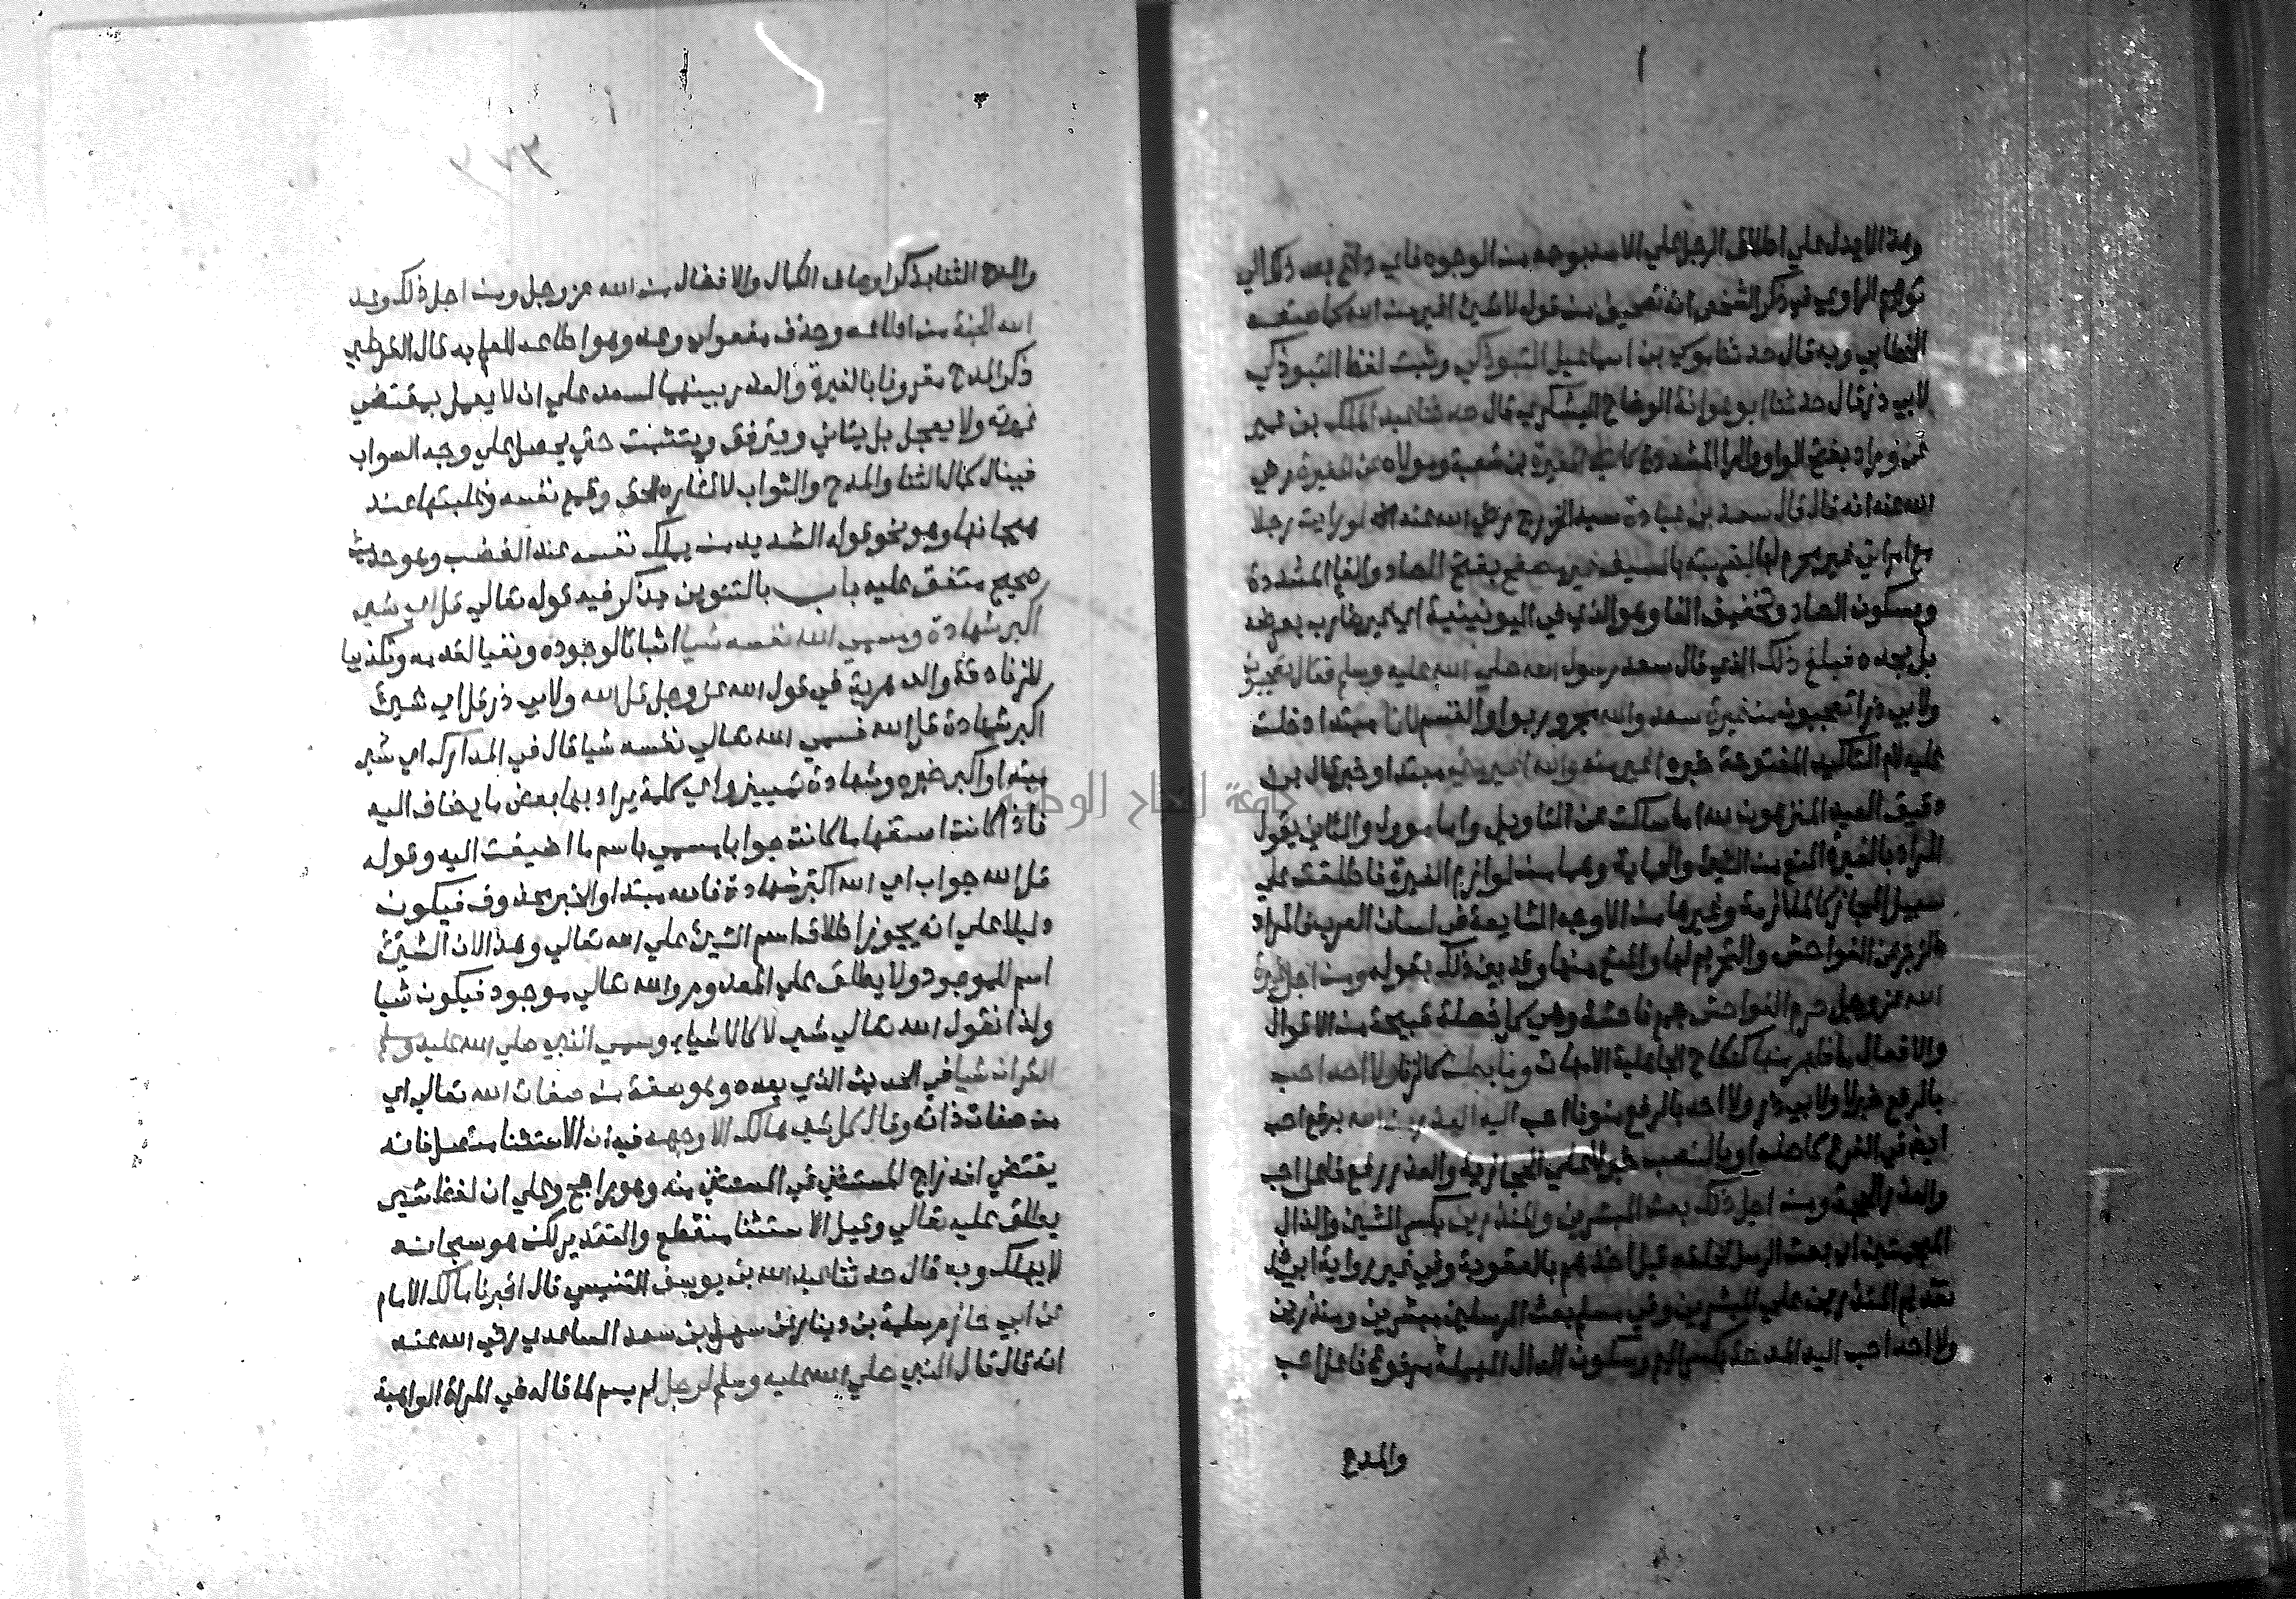 وهذا لا يدل على اطلاق الرجل على الله بوجه من الوجوه فاي دافع بعد ذلك الي
توهيم الراوي في ذكر الشخص انه تصحيف من قوله لا شيئ اغير من الله كما صنعه
الخطابي وبه قال حدثنا موسى بن اسماعيل التبوذكي وثبت لفظ التبوذكي
لابي ذر قال حدثنا ابو عوانة الوضاح اليشكري قال حدثنا عبد الملك بن عمير
عن وراد بفتح الواو والرا المشددة كاتب المغيرة بن شعبة ومولاه عن المغيرة رضي
الله عنه انه قال قال سعد بن عبادة سيد الخزرج رضي الله عنه لو رايت رجلا
مع امراتي غير محرم لها لضربته بالسيف غير مصفح بفتح الصاد والفا المشددة
وبسكون الصاد وتخفيف الفا وهو الذي في اليونينية اي غير ضارب بعرضه
بل بحده فبلغ ذلك الذي قال سعد رسول الله صلي الله عليه وسلم فقال تعجبون
ولابي ذر اتعجبون من غيرة سعد والله مجرور بواو القسم لانا مبتدا دخلت
عليه لام التاكيد المفتوحة خبره اغير منه والله اغير مني مبتدا وخبر قال بن
دقيق العيد المنزهون لله اما ساكت عن التاويل واما موول والثاني يقول
المراد بالغيرة المنع من الشيئ والحماية وهما من لوازم الغيرة فاطلقت على
سبيل المجاز كالملازمة وغيرها من الاوجه الشايعة في لسان العرب فالمراد
الزجر عن الفواحش والتحريم لها والمنع منها وقد بين ذلك بقوله ومن اجل غيرة
الله عز وجل حرم الفواحش جمع فاحشة وهي كل خصلة قبيحة من الاقوال
والافعال ما ظهر منها كنكاح الجاهلية الامهات وما بطن كالزنا ولا احد احب
بالرفع خبر لا ولابي ذر ولا احد بالرفع منونا احب اليه العذر من الله برفع احب
ايضا في الفرع كاصله او بالنصب خبر لا على الحجازية والعذر رفع فاعل احب
والعذر الحجة ومن اجل ذلك بعث المبشرين والمنذرين بكسر الشين والذال
المعجمتين اي بعث الرسل لخلقه قبل اخذهم بالعقوبة وفي غير رواية ابي ذر
تقديم المنذرين على المبشرين وفي مسلم بعث المرسلين مبشرين ومنذرين
ولا احد احب اليه المدحة بكسر الميم وسكون الدال المهملة مرفوع فاعل احب
والمدح
٣٧٣
والمدح الثنا بذكر اوصاف الكمال والافضال من الله عز وجل ومن اجل ذلك وعد
الله الجنة من اطاعه وحذف مفعولي وعد وهو اطاعه للعلم به قال القرطبي
ذكر المدح مقرونا بالغيرة والعذر تنبيها لسعد علي ان لا يعمل بمقتضى
غيرته ولا يعجل بل يتاني ويترفق ويتثبت حتي يحصل علي وجه الصواب
فينال كمال الثنا والمدح والثواب لايثاره الحق وقمع نفسه وغلبتها عند
هيجانها وهو نحو قوله الشديد من يملك نفسه عند الغضب وهو حديث
صحيح متفق عليه باب بالتنوين يذكر فيه قوله تعالى قل اي شيى
اكبر شهادة وسمي الله نفسه شيا اثباتا لوجوده ونفيا لعدمه وتكذيبا
للزنادقة والدهرية في قول الله عز وجل قل الله ولابي ذر قل اي شيئ
اكبر شهادة قل الله فسمي الله تعالى نفسه شيا قال في المدارك اي شيى
مبتدا واكبر خبره وشهادة تمييز واي كلمة يراد بها بعض ما يضاف اليه
فاذا كانت استفهاما كانت جوابا مسمي باسم ما اضيفت اليه وقوله
قل الله جواب اي الله اكبر شهادة فالله مبتدا والخبر محذوف فيكون
دليلا علي انه يجوز اطلاق اسم الشيئ علي الله تعالى وهذا لان الشيئ
اسم للموجود ولا يطلق علي المعدوم والله تعالى موجود فيكون شيا
ولذا نقول الله تعالى شيى لا كالاشيا وسمي النبي صلي الله عليه وسلم
القران شيا في الحديث الذي بعده وهو صفة من صفات الله تعالى اي
من صفات ذاته وقال كل شيى هالك الا وجهه فيه ان الاستثنا متصل فانه
يقتضي اندراج المستثني في المستثني منه وهو راجح وعلي ان لفظ شيى
يطلق عليه تعالى وقيل الاستثنا منقطع والتقدير لكن هو سبحانه
لا يهلك وبه قال حدثنا عبد الله بن يوسف التنيسي قال اخبرنا مالك الامام
عن ابي حازم سلمة بن دينار عن سهل بن سعد الساعدي رضي الله عنه
انه قال قال النبي صلي الله عليه وسلم لرجل لم يسم لما قاله في المراة الواهبة